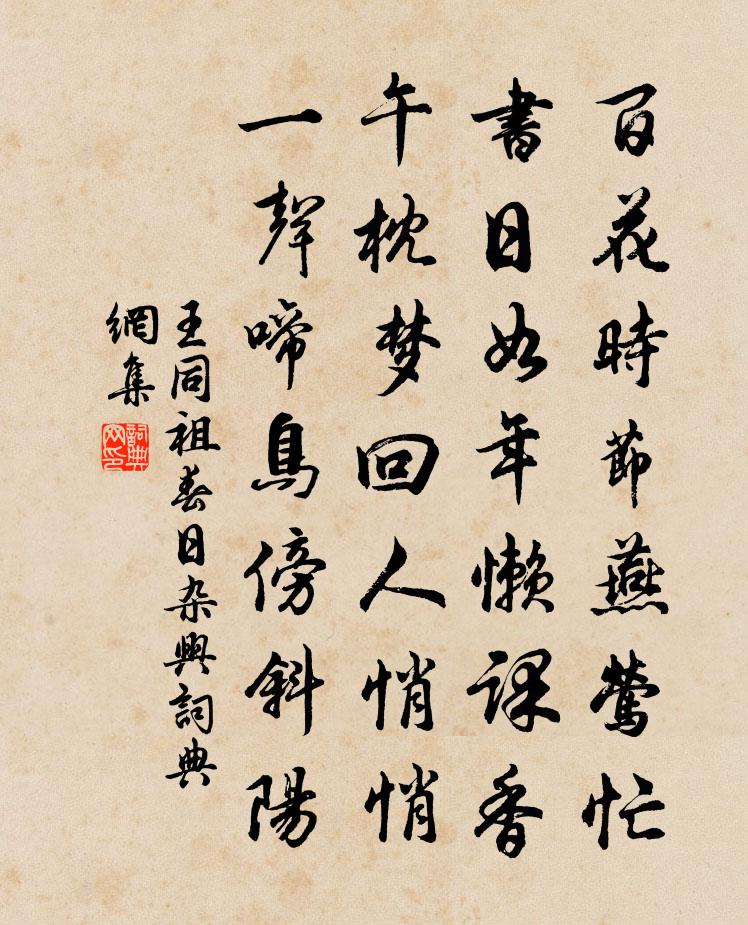 百花時節燕鶯忙
書日如年懶課香
午枕梦回人悄悄
一聲啼鳥傍斜陽
王同祖春日杂興詞典
網集
詞典
网印